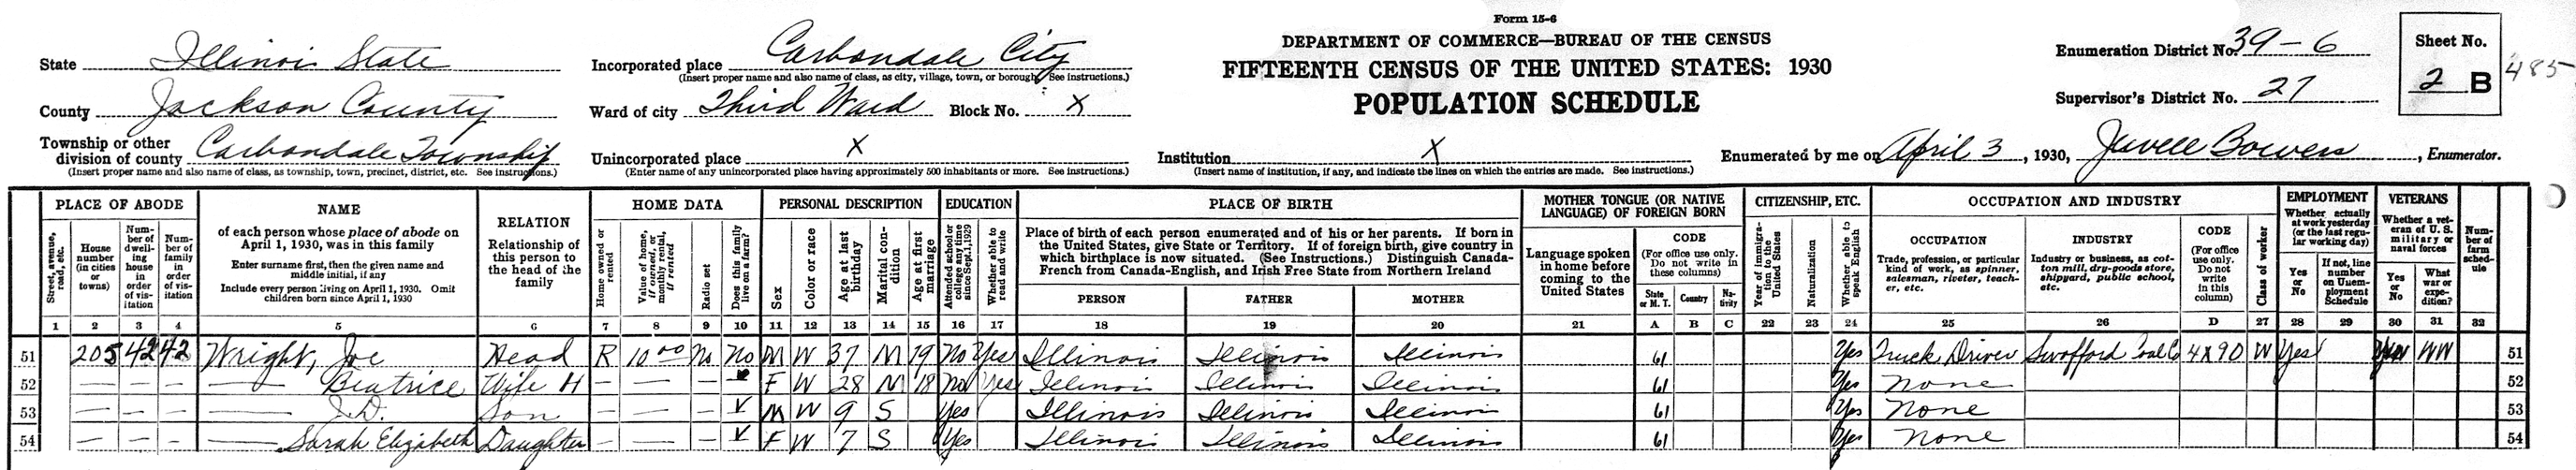 Form 15-6
State Illinois State
Incorporated place Carbondale City
(Insert proper name and also name of class, as city, village, town, or borough. See instructions.)
DEPARTMENT OF COMMERCE—BUREAU OF THE CENSUS
FIFTEENTH CENSUS OF THE UNITED STATES: 1930
POPULATION SCHEDULE
Enumeration District No. 39-6
Supervisor's District No. 27
Sheet No.
2 B
485
County Jackson County
Ward of city Third Ward Block No. X
Township or other
division of county Carbondale Township
(Insert proper name and also name of class, as township, town, precinct, district, etc. See instructions.)
Unincorporated place X
(Enter name of any unincorporated place having approximately 500 inhabitants or more. See instructions.)
Institution X
(Insert name of institution, if any, and indicate the lines on which the entries are made. See instructions.)
Enumerated by me on April 3, 1930, Bowers, Enumerator.
PLACE OF ABODE
Street, avenue, road, etc.
House number (in cities or towns)
Number of dwelling house in order of visitation
Number of family in order of visitation
NAME
of each person whose place of abode on
April 1, 1930, was in this family
Enter surname first, then the given name and
middle initial, if any
Include every person living on April 1, 1930. Omit
children born since April 1, 1930
RELATION
Relationship of
this person to
the head of the
family
HOME DATA
Home owned or rented
Value of home, if owned, or monthly rental, if rented
Radio set
Does this family live on a farm?
PERSONAL DESCRIPTION
Sex
Color or race
Age at last birthday
Marital condition
Age at first marriage
EDUCATION
Attended school or college any time since Sept. 1, 1929
Whether able to read and write
PLACE OF BIRTH
Place of birth of each person enumerated and of his or her parents. If born in
the United States, give State or Territory. If of foreign birth, give country in
which birthplace is now situated. (See Instructions.) Distinguish Canada-
French from Canada-English, and Irish Free State from Northern Ireland
PERSON FATHER MOTHER
MOTHER TONGUE (OR NATIVE
LANGUAGE) OF FOREIGN BORN
Language spoken
in home before
coming to the
United States
CODE
(For office use only.
Do not write in
these columns)
State or M. T. Country Nativity
CITIZENSHIP, ETC.
Year of immigration to the United States
Naturalization
Whether able to speak English
OCCUPATION AND INDUSTRY
OCCUPATION
Trade, profession, or particular
kind of work, as spinner,
salesman, riveter, teach-
er, etc.
INDUSTRY
Industry or business, as cot-
ton mill, dry-goods store,
shipyard, public school,
etc.
CODE
(For office
use only.
Do not
write
in this
column)
Class of worker
EMPLOYMENT
Whether actually
at work yesterday
(or the last regu-
lar working day)
Yes or No
If not, line number on Unemployment Schedule
VETERANS
Whether a vet-
eran of U. S.
military or
naval forces
Yes or No
What war or expedition?
Number of farm schedule
1 2 3 4 5 6 7 8 9 10 11 12 13 14 15 16 17 18 19 20 21 A B C 22 23 24 25 26 D 27 28 29 30 31 32
51 205 42 42 Wright, Joe Head R 10 00 No No M W 37 M 19 No Yes Illinois Illinois Illinois 61 Yes Truck Driver Swofford Coal Co 4X90 W Yes WW 51
52 — — — — Beatrice Wife H — — — F W 28 M 18 No Yes Illinois Illinois Illinois 61 Yes None 52
53 — — — — J.D. Son — — — ✓ M W 9 S Yes Illinois Illinois Illinois 61 Yes None 53
54 — — — — Sarah Elizabeth Daughter — — — ✓ F W 7 S Yes Illinois Illinois Illinois 61 Yes None 54